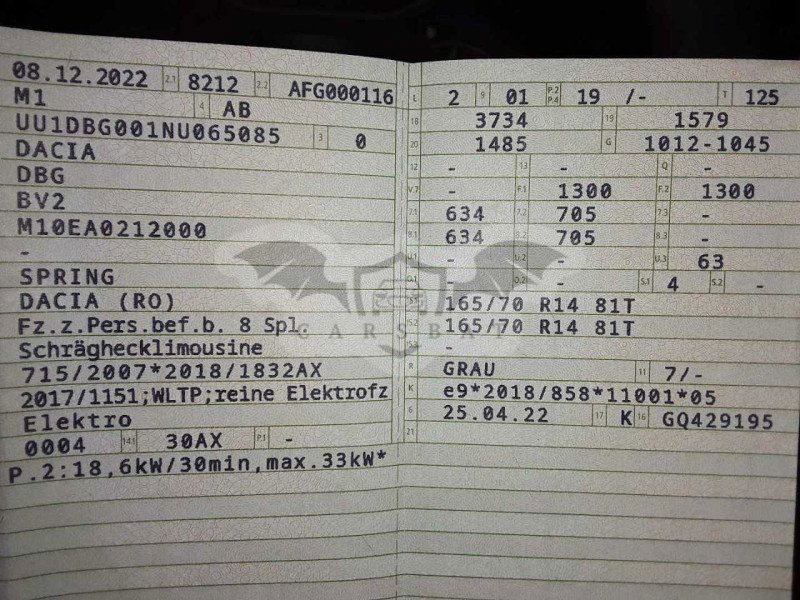 08.12.2022 2.1 8212 2.2 AFG000116
M1 4 AB
UU1DBG001NU065085 3 0
DACIA
DBG
BV2
M10EA0212000
-
SPRING
DACIA (RO)
Fz.z.Pers.bef.b. 8 Spl.
Schräghecklimousine
715/2007*2018/1832AX
2017/1151;WLTP;reine Elektrofz
Elektro
0004 14.1 30AX P.1 -
P.2:18,6kW/30min,max.33kW*
L 2 9 01 P.2 P.4 19 /- T 125
18 3734 19 1579
20 1485 G 1012-1045
12 - 13 - Q -
V.7 - F.1 1300 F.2 1300
7.1 634 7.2 705 7.3 -
8.1 634 8.2 705 8.3 -
U.1 - U.2 - U.3 63
O.1 - O.2 - S.1 4 S.2 -
165/70 R14 81T
165/70 R14 81T
-
R GRAU 11 7/-
K e9*2018/858*11001*05
6 25.04.22 17 K 16 GQ429195
21
CARSBAT